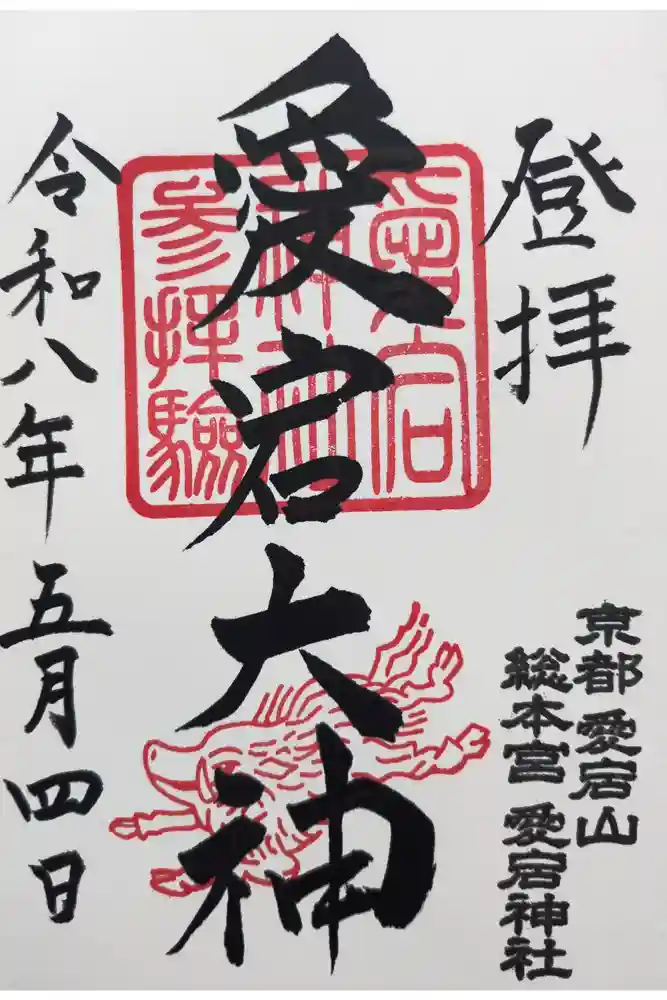 登拝
京都 愛宕山
総本宮 愛宕神社
愛宕
神社
参拝験
愛宕大神
令和八年五月四日